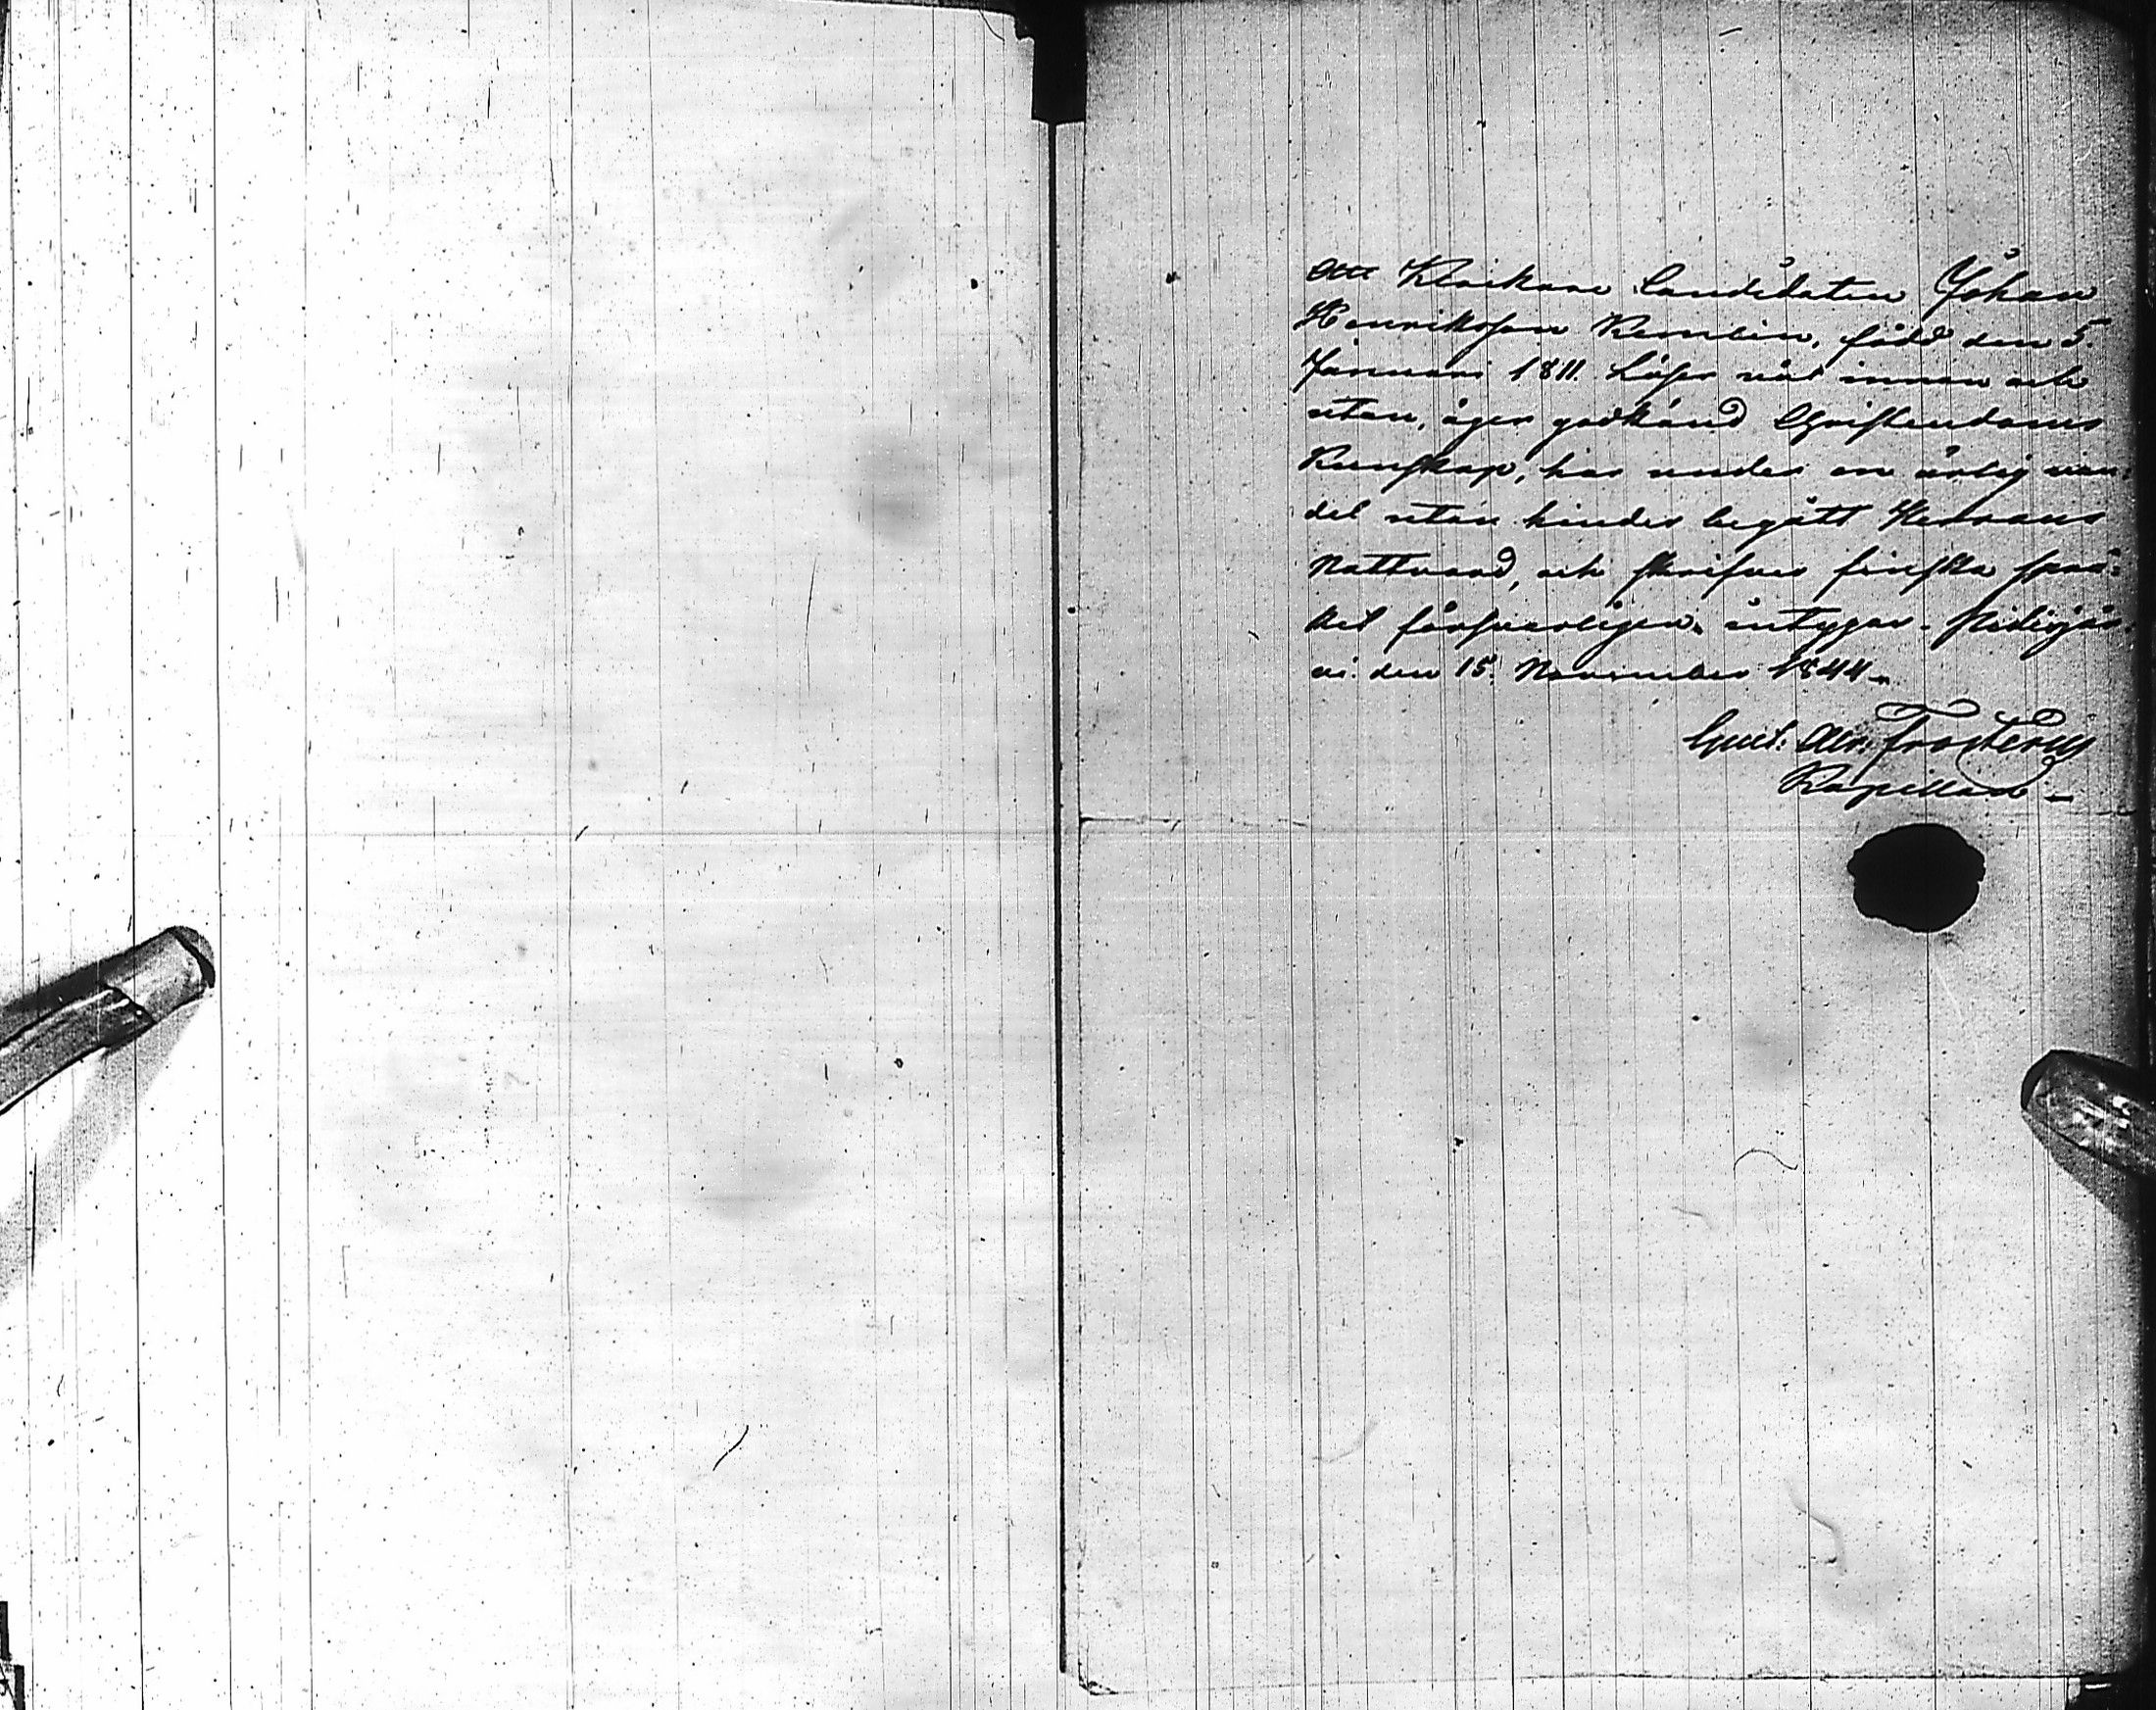 Att Klockare Candidaten Johan
Henriksson Remlin, född den 5.
Januari 1811. Läser väl innan och
utan, äger godkänd Christendoms
Kunskap, har under en ärlig van:
del utan hinder begått Herrans
Nattvard, och skrifver finska språ:
ket försvarligen, intygar. Pidisjär:
vi den 15. November 1844.
Gust. Adr. Frosterus
Kapellan